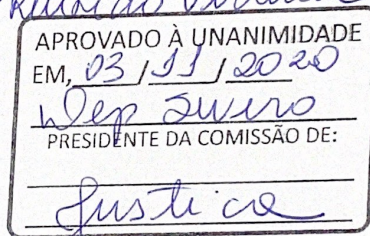 APROVADO À UNANIMIDADE
EM, 03 / 11 / 2020
Dep
PRESIDENTE DA COMISSÃO DE:
Justiça